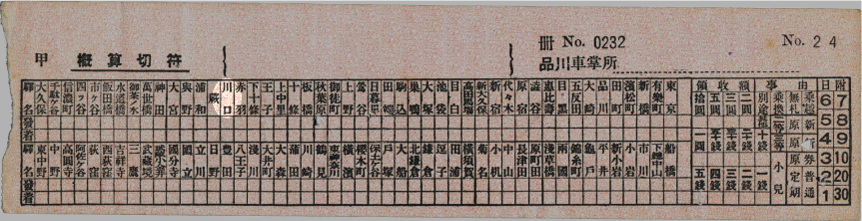 甲 概算切符
冊 No. 0232
No. 24
品川車掌所
驛名 大久保 千駄ヶ谷 信濃町 四ッ谷 市ヶ谷 飯田橋 水道橋 御茶ノ水 萬世橋 神田 大宮 與野 浦和 蕨 川口 赤羽 下十條 王子 上中里 板橋 秋葉原 御徒町 上野 鶯谷 日暮里 田端 駒込 巣鴨 大塚 池袋 目白 高田馬場 新大久保 新宿 代々木 原宿 澁谷 恵比壽 目黒 五反田 大崎 品川 田町 濱松町 新橋 有樂町 東京
發着
驛名 東中野 中野 高圓寺 阿佐ヶ谷 荻窪 西荻窪 吉祥寺 三鷹 武蔵境 國分寺 國立 立川 日野 豊田 八王子 淺川 大井町 大森 蒲田 川崎 鶴見 東神奈川 横濱 櫻木町 保土ヶ谷 戸塚 大船 北鎌倉 鎌倉 逗子 田浦 横須賀 菊名 小机 長津田 原町田 淺草橋 兩國 錦糸町 亀戸 平井 新小岩 小岩 市川 下總中山 船橋
發着
領收額 事由 日附
拾圓 五圓 四圓 三圓 二圓 別途 乘換 無札 乘越
一圓 十錢 小兒 原券 普通 定期
五錢 四錢 三錢 二錢 一錢
6 7
5 8
4 9
3 10
2 20
1 30